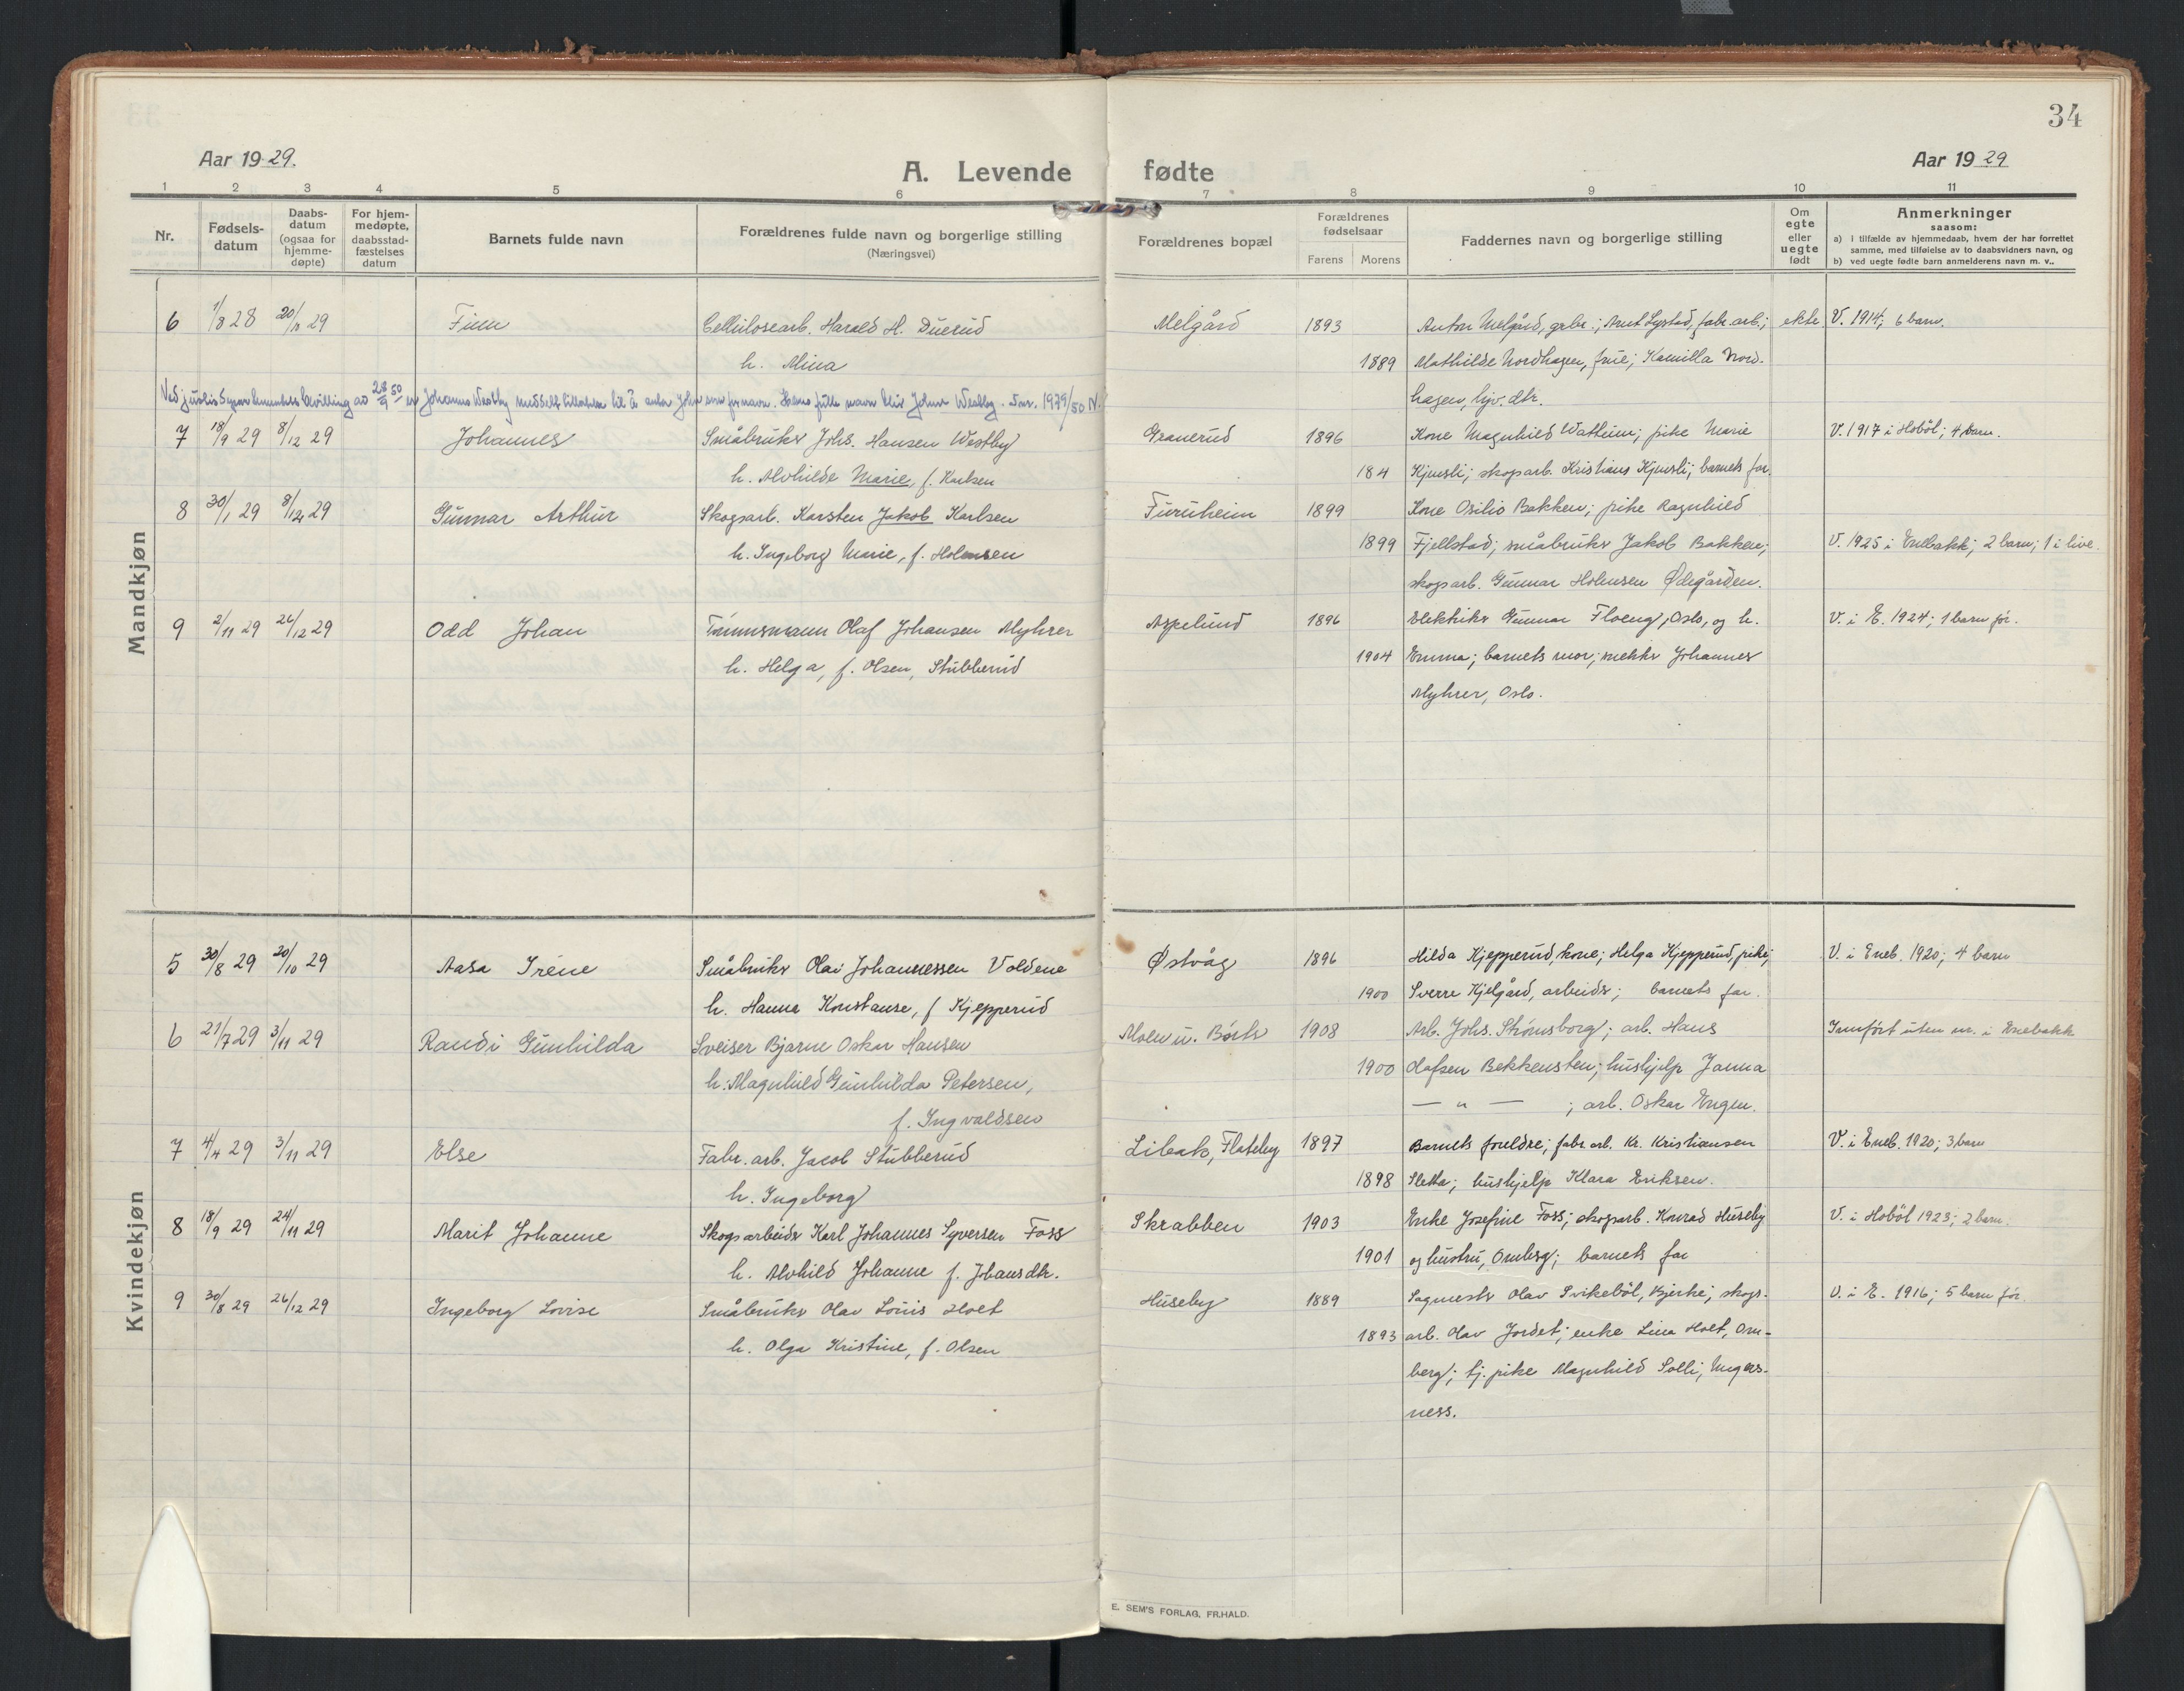 34
Aar 1929.
A. Levende fødte
Aar 1929
1 2 3 4 5 6 7 8 9 10 11
Nr.
Fødsels-
datum
Daabs-
datum
(ogsaa for
hjemme-
døpte)
For hjem-
medøpte,
daabsstad-
fæstelses
datum
Barnets fulde navn
Forældrenes fulde navn og borgerlige stilling
(Næringsvei)
Forældrenes bopæl
Forældrenes
fødselsaar
Farens Morens
Faddernes navn og borgerlige stilling
Om
egte
eller
uegte
født
Anmerkninger
saasom:
a) i tilfælde av hjemmedaab, hvem der har forrettet
samme, med tilføielse av to daabsvidners navn, og
b) ved uegte fødte barn anmelderens navn m. v..
Mandkjøn
6 1/8 28 20/10 29 Finn Cellulosearb. Harald H. Duerud Melgård 1893 Anton Melgård, grbr.; Arnt Lystad, fabr. arb.; ekte V. 1914; 6 barn.
h. Mina 1889 Mathilde Nordhagen, frue; Kamilla Nord-
hagen, hjv. dtr.
Ved justisdepartementets bevilling av 28/9 50 er Johannes Westby meddelt tillatelse til å anta John som fornavn. Hans fulle navn blir John Westby. Jnr. 1979/50 N.
7 18/9 29 8/12 29 Johannes Småbruker Johs. Hansen Westby Granerud 1896 Kone Magnhild Wattum; pike Marie V. 1917 i Hobøl; 4 barn.
h. Alvhilde Marie, f. Karlsen 184 Kjensli; skogsarb. Kristians Kjensli; barnets far.
8 30/1 29 8/12 29 Gunnar Arthur Skogsarb. Karsten Jakob Karlsen Furuheim 1899 Kone Osilio Bakken; pike Ragnhild
h. Ingeborg Marie, f. Holmsen 1899 Fjellstad; småbruker Jakob Bakken; V. 1925 i Enebakk; 2 barn; 1 i live.
skogsarb. Gunnar Holmsen Ødegården.
9 2/11 29 26/12 29 Odd Johan Tømmermann Olaf Johansen Myhrer Aspelund 1896 Elektriker Gunnar Floeng, Oslo, og h. V. i E. 1924; 1 barn før.
h. Helga, f. Olsen, Stubberud 1904 Emma; barnets mor; mekker Johannes
Myhrer, Oslo.
Kvindekjøn
5 30/8 29 20/10 29 Aasa Iréne Småbruker Olav Johannessen Voldene Østvåg 1896 Hilda Kjepperud, kone; Helga Kjepperud, pike; V. i Eneb. 1920; 4 barn
h. Hanna Konstanse, f. Kjepperud 1900 Sverre Kjelgård, arbeider; barnets far.
6 21/7 29 3/11 29 Randi Gunhilda Sveiser Bjarne Oskar Hansen 1908 Arb. Johs. Strømsborg; arb. Hans Innført uten nr. i Enebakk
h. Magnhild Gunhilda Petersen, 1900 Olafsen Bekkensten; hushjelp Janna
f. Ingvaldsen — " — ; arb. Oskar Engen.
7 4/4 29 3/11 29 Else Fabr. arb. Jacob Stubberud Libakk, Flateby 1897 Barnets foreldre; fabr. arb. Kr. Kristiansen V. i Eneb. 1920; 3 barn
h. Ingeborg 1898 Sletta; hushjelp Klara Eriksen.
8 18/9 29 24/11 29 Marit Johanne Skogsarbeider Karl Johannes Syversen Foss Skrabben 1903 Enke Josefine Foss; skogsarb. Konrad Huseby V. i Hobøl 1923; 2 barn.
h. Alvhild Johanne f. Johansdtr. 1901 og hustru, Omberg; barnets far
9 30/8 29 26/12 29 Ingeborg Lovise Småbruker Olav Louis Holt Huseby 1889 Sagmester Olav Svikebøl, Bjerke; skogs- V. i E. 1916; 5 barn før.
h. Olga Kristine, f. Olsen 1893 arb. Olav Jordet; enke Lina Holt, Om-
berg; tj. pike Magnhild Solli, Ungers-
ness.
E. SEM'S FORLAG, FR.HALD.